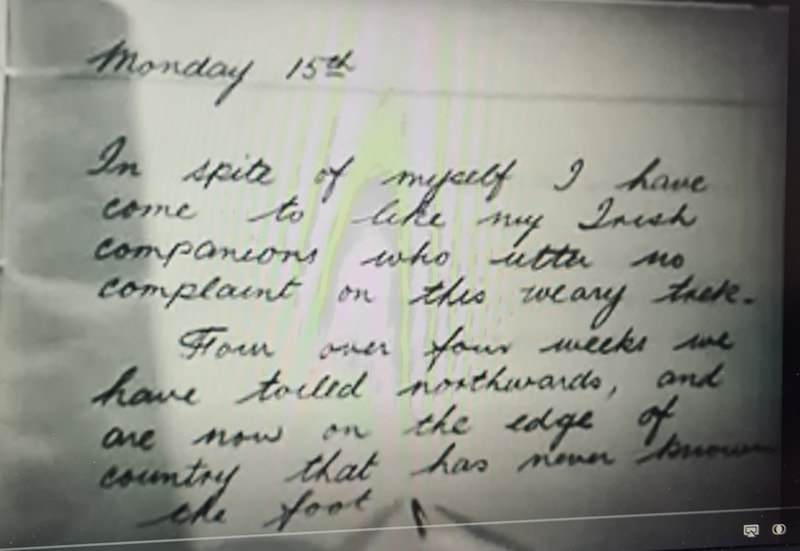 Monday 15th
In spite of myself I have
come to like my Irish
companions who utter no
complaint on this weary trek.
over four weeks we
have toiled northwards, and
are now on the edge of
country that has never known
the foot